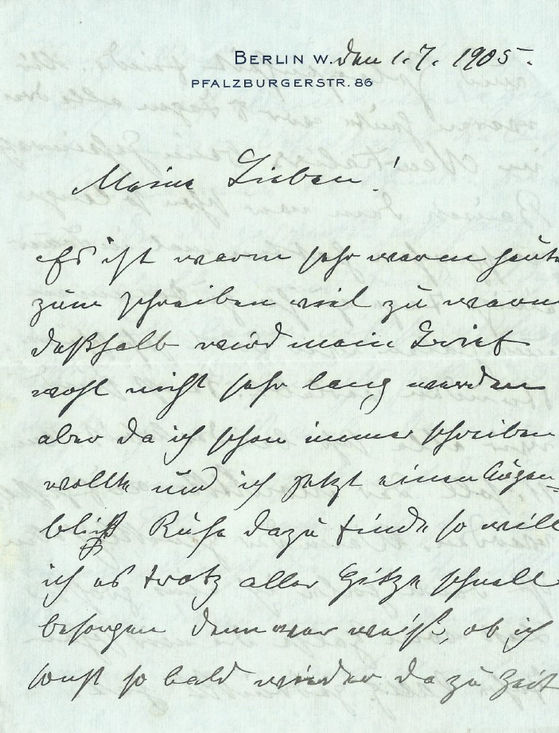 BERLIN W. den 1.7.1905.
PFALZBURGERSTR. 86
Meine Lieben!
Es ist warm sehr warm heute
zum schreiben viel zu warm
deßhalb wird mein Brief
wohl nicht sehr lang werden
aber da ich schon immer schreiben
wollte und ich jetzt einen Augen-
blick Ruhe dazu finde so will
ich es trotz aller Hitze schnell
besorgen denn wer weiß, ob ich
sonst so bald wieder dazu Zeit